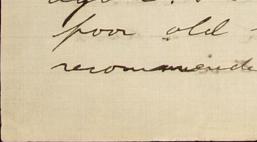 poor old
recommende